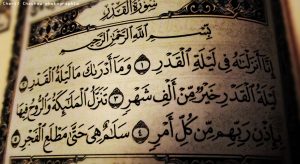 Cherif Chachou photographie
سُورَةُ الْقَدْرِ
بِسْمِ اللَّهِ الرَّحْمَٰنِ الرَّحِيمِ
إِنَّا أَنزَلْنَاهُ فِي لَيْلَةِ الْقَدْرِ ١ وَمَا أَدْرَاكَ مَا لَيْلَةُ الْقَدْرِ ٢
لَيْلَةُ الْقَدْرِ خَيْرٌ مِّنْ أَلْفِ شَهْرٍ ٣ تَنَزَّلُ الْمَلَائِكَةُ وَالرُّوحُ فِيهَا
بِإِذْنِ رَبِّهِم مِّن كُلِّ أَمْرٍ ٤ سَلَامٌ هِيَ حَتَّىٰ مَطْلَعِ الْفَجْرِ ٥